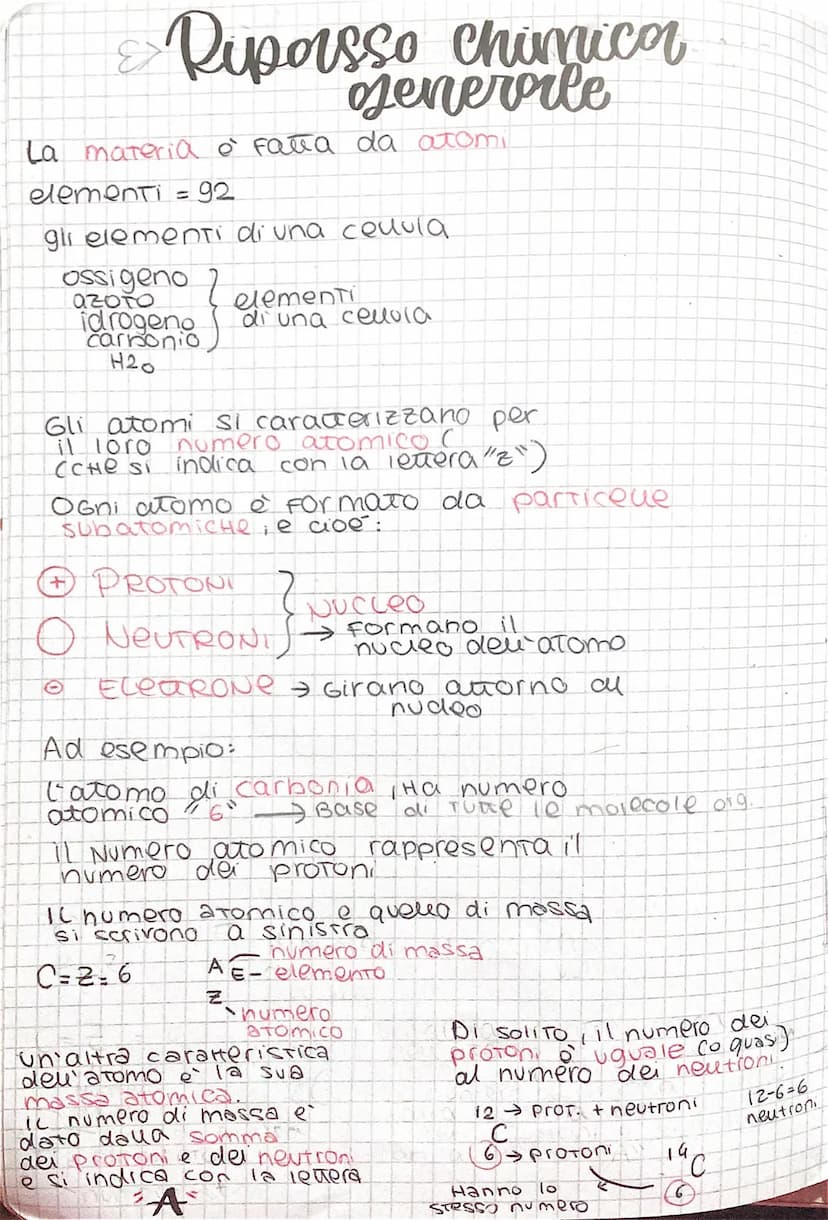 Ripasso chimica
generale
La materia è fatta da atomi
elementi = 92
gli elementi di una cellula
ossigeno
azoto
idrogeno
carbonio
H2O
elementi
di una cellula
Gli atomi si caratterizzano per
il loro numero atomico (
(che si indica con la lettera "Z")
Ogni atomo è formato da particelle
subatomiche, e cioè:
+ PROTONI
NEUTRONI
NUCLEO
→ Formano il
nucleo dell'atomo
- ELETTRONE → Girano attorno al
nucleo
Ad esempio:
L'atomo di carbonia, Ha numero
atomico "6" → Base di tutte le molecole org.
Il Numero atomico rappresenta il
numero dei protoni
Il numero atomico e quello di massa
si scrivono a sinistra
C=Z=6
A E - numero di massa
elemento
Z
numero
atomico
un'altra caratteristica
dell'atomo è la sua
massa atomica.
Il numero di massa e'
dato dalla somma
dei protoni e dei neutroni
e si indica con la lettera
"A"
Di solito, il numero dei
protoni è uguale (o quasi)
al numero dei neutroni.
12 → prot. + neutroni
C
6 → protoni
12-6=6
neutroni
14 C
6
Hanno lo
stesso numero